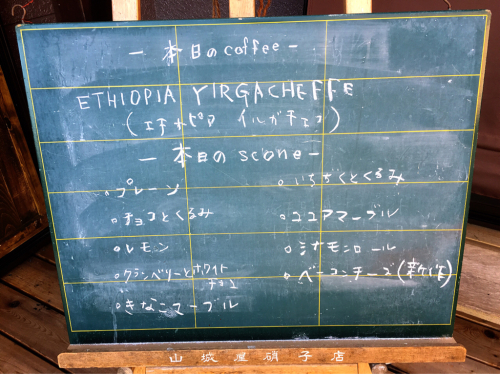 - 本日のcoffee -
ETHIOPIA YIRGACHEFFE
(エチオピア イルガチェフ)
- 本日の scone -
。プレーン
。チョコとくるみ
。レモン
。クランベリーとホワイト
チョコ
。きなこマーブル
。いちぢくとくるみ
。ココアマーブル
。シナモンロール
。ベーコンチーズ(新作)
山城屋硝子店